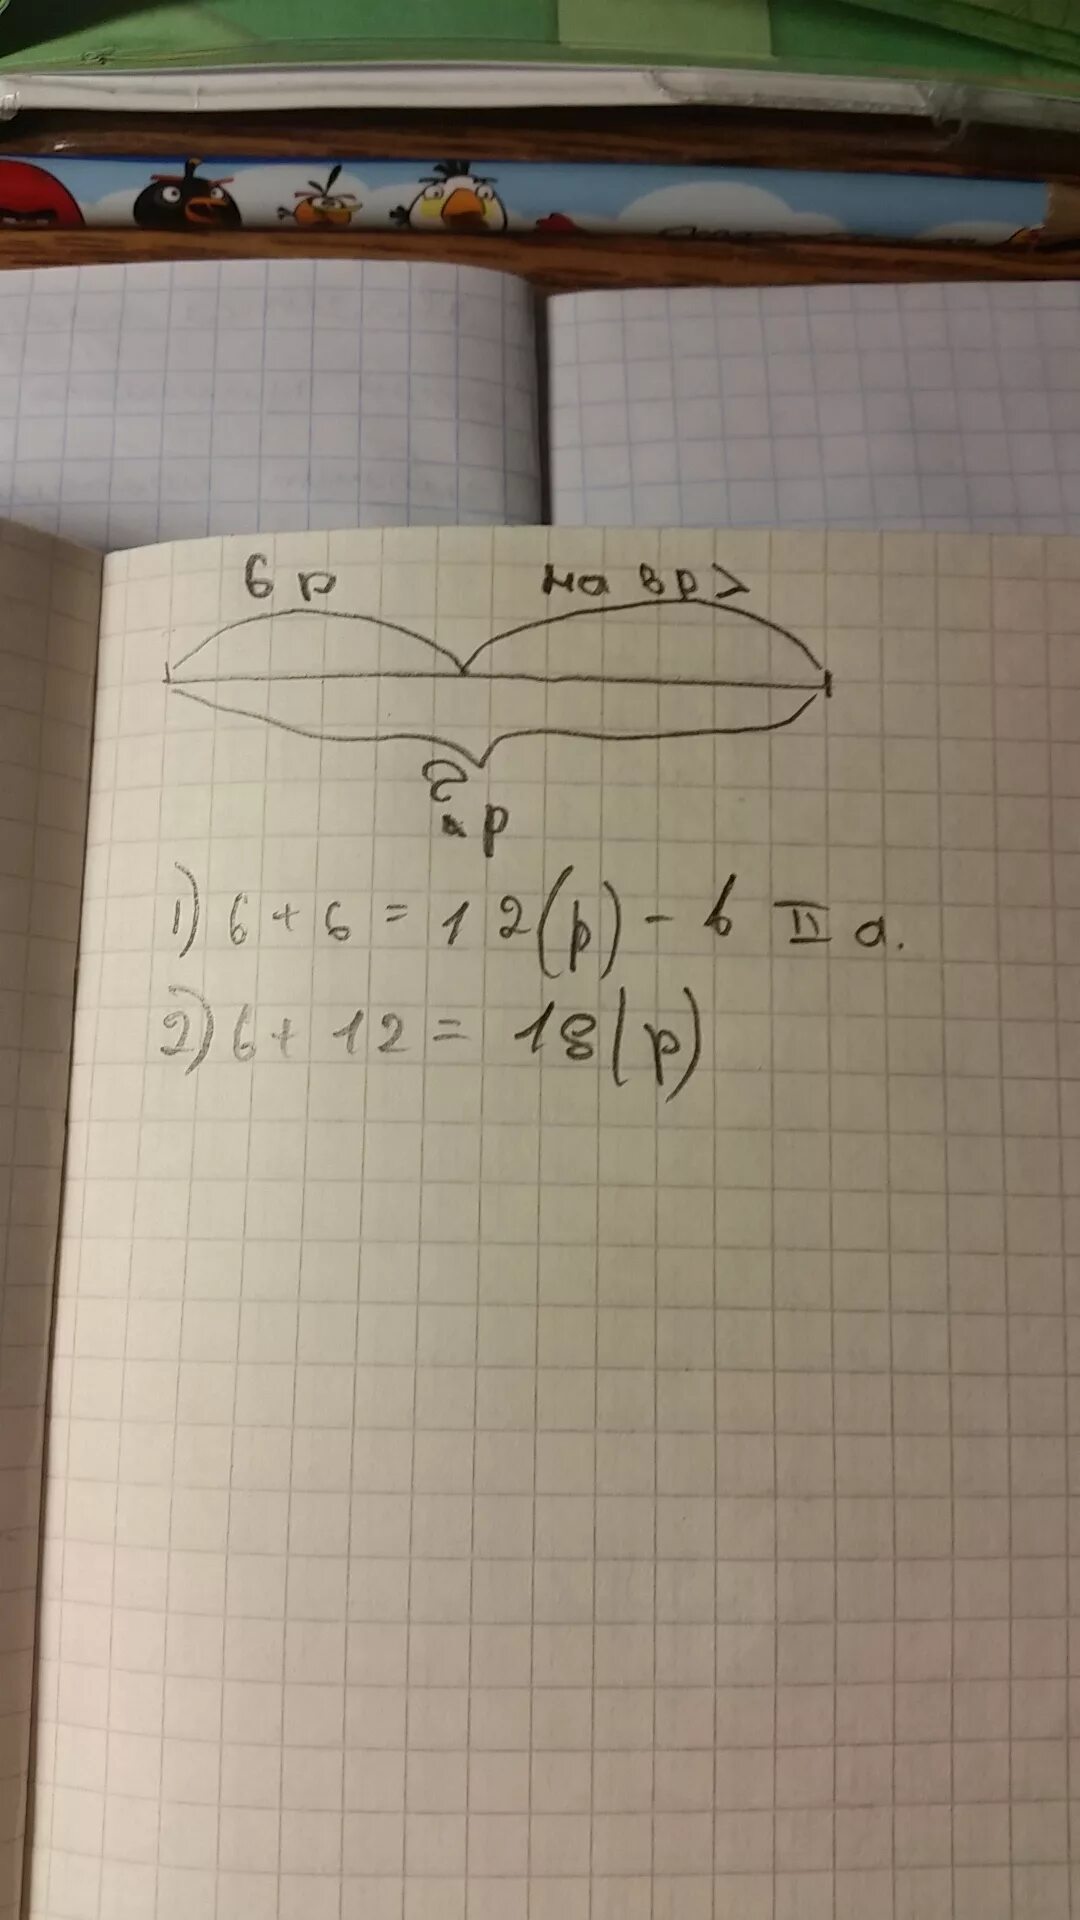 6 р на 8р >
?
р
1) 6 + 6 = 12 (р) - в II а.
2) 6 + 12 = 18 (р)